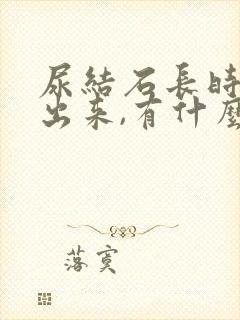 尿結石長時
出來,有什麼
落寞